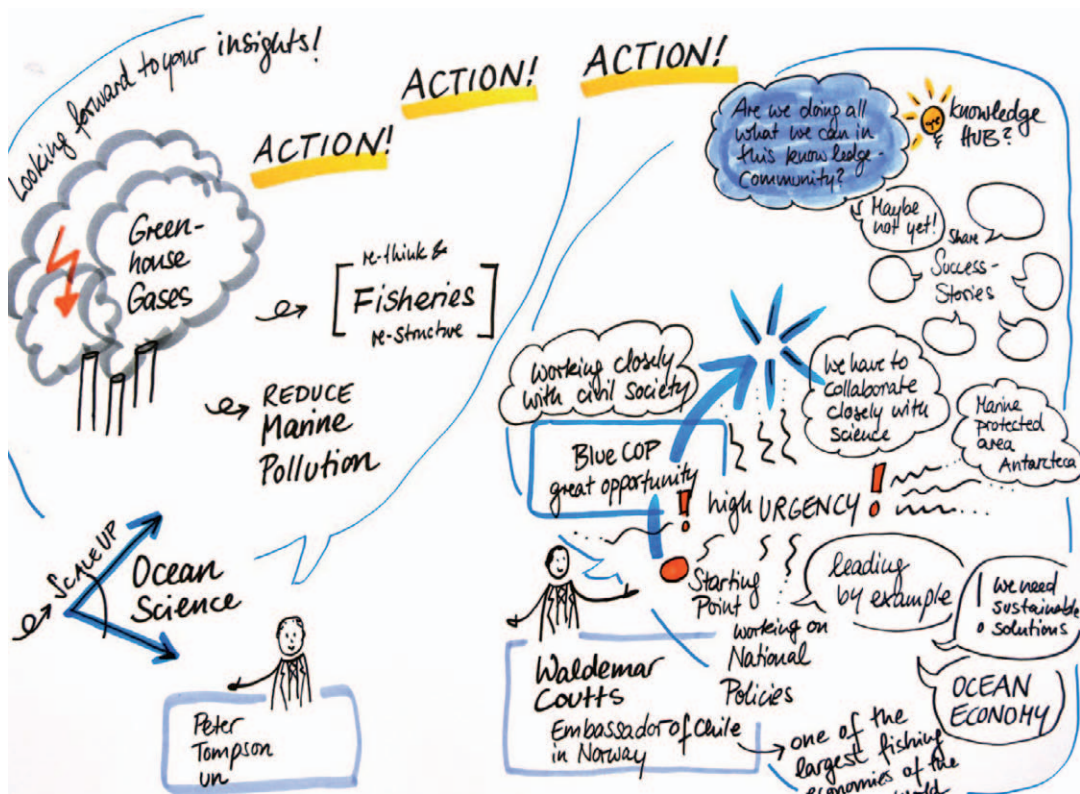 Looking forward to your insights!
ACTION!
ACTION!
ACTION!
Green-
house
Gases
re-think &
Fisheries
re-structure
REDUCE
Marine
Pollution
SCALE UP
Ocean
Science
Peter
Tompson
UN
Are we doing all
what we can in
this knowledge-
community?
Knowledge
HUB?
Maybe
not yet!
Share
Success-
Stories
Working closely
with civil society
Blue COP
great opportunity
We have to
collaborate
closely with
science
Marine
protected
area
Antarcteca
! high URGENCY !
Starting
Point
working on
National
Policies
leading
by example
! we need
sustainable
solutions
OCEAN
ECONOMY
Waldemar
Coutts
Embassador of Chile
in Norway
one of the
largest fishing
economies of the